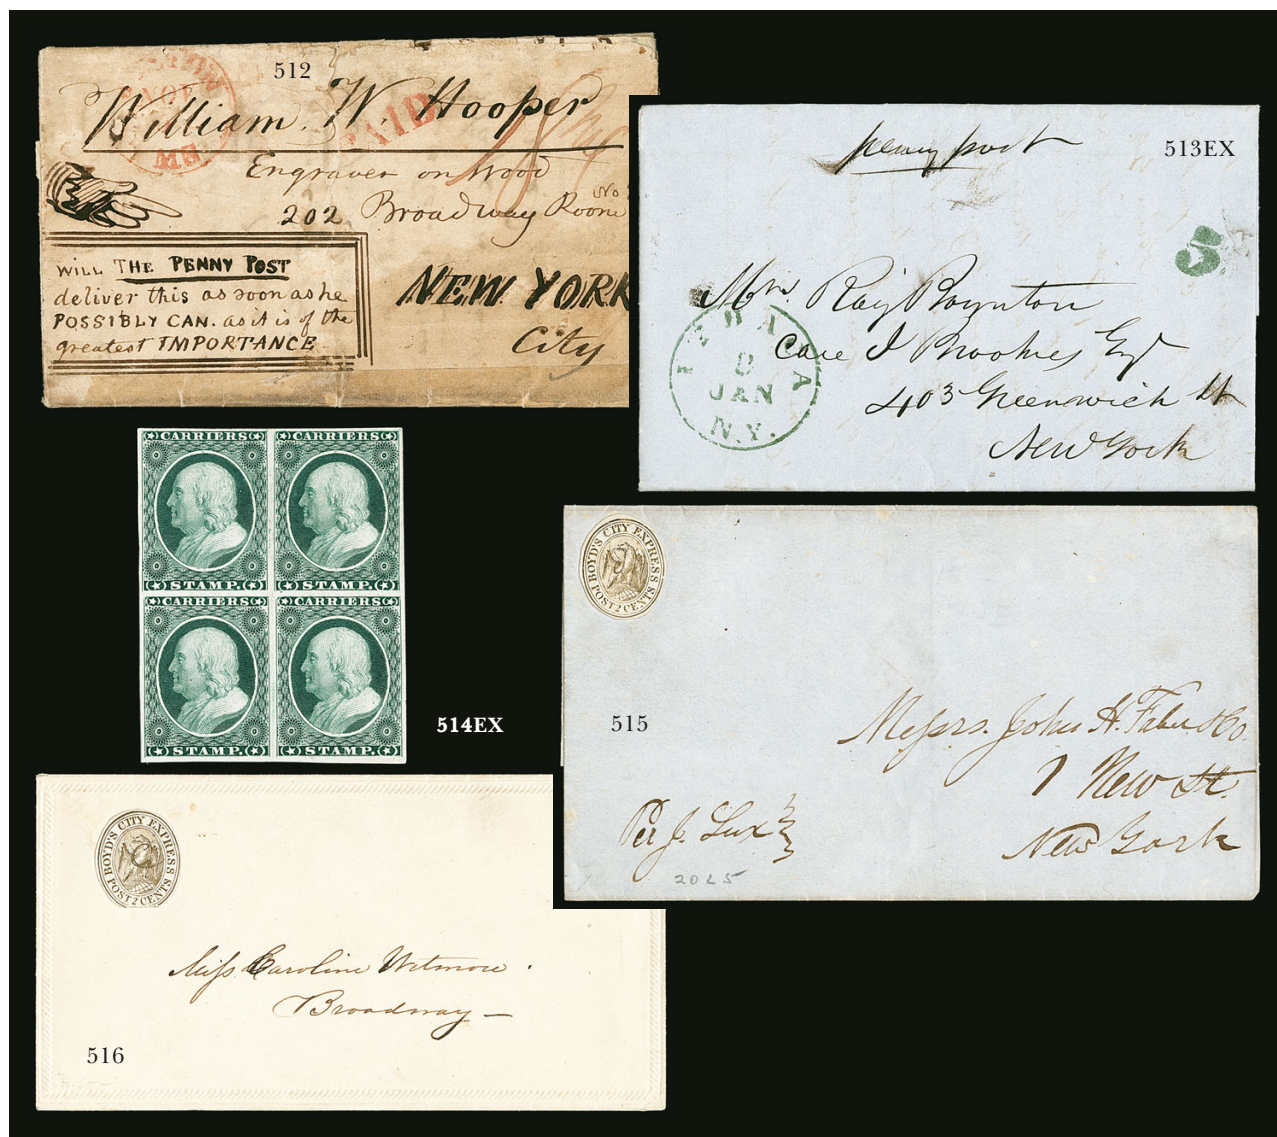 512
William. W. Hooper
PAID
MS.
NOV
Engraver on Wood
202 Broadway Room No
NEW YORK
City
WILL THE PENNY POST
deliver this as soon as he
POSSIBLY CAN. as it is of the
greatest IMPORTANCE
513EX
penny post
5
Mr. Ray Boynton
Care J Brookes Esqr
403 Greenwich St
New York
ITHACA
8
JAN
N.Y.
CARRIERS CARRIERS
STAMP. STAMP.
CARRIERS CARRIERS
STAMP. STAMP.
514EX
BOYD'S CITY EXPRESS
POST 2 CENTS
515
Messrs. John H. Faber & Co.
7 New St.
New York
Per J. Lux
20L5
BOYD'S CITY EXPRESS
POST 2 CENTS
Miss Caroline Wetmore.
Broadway —
516